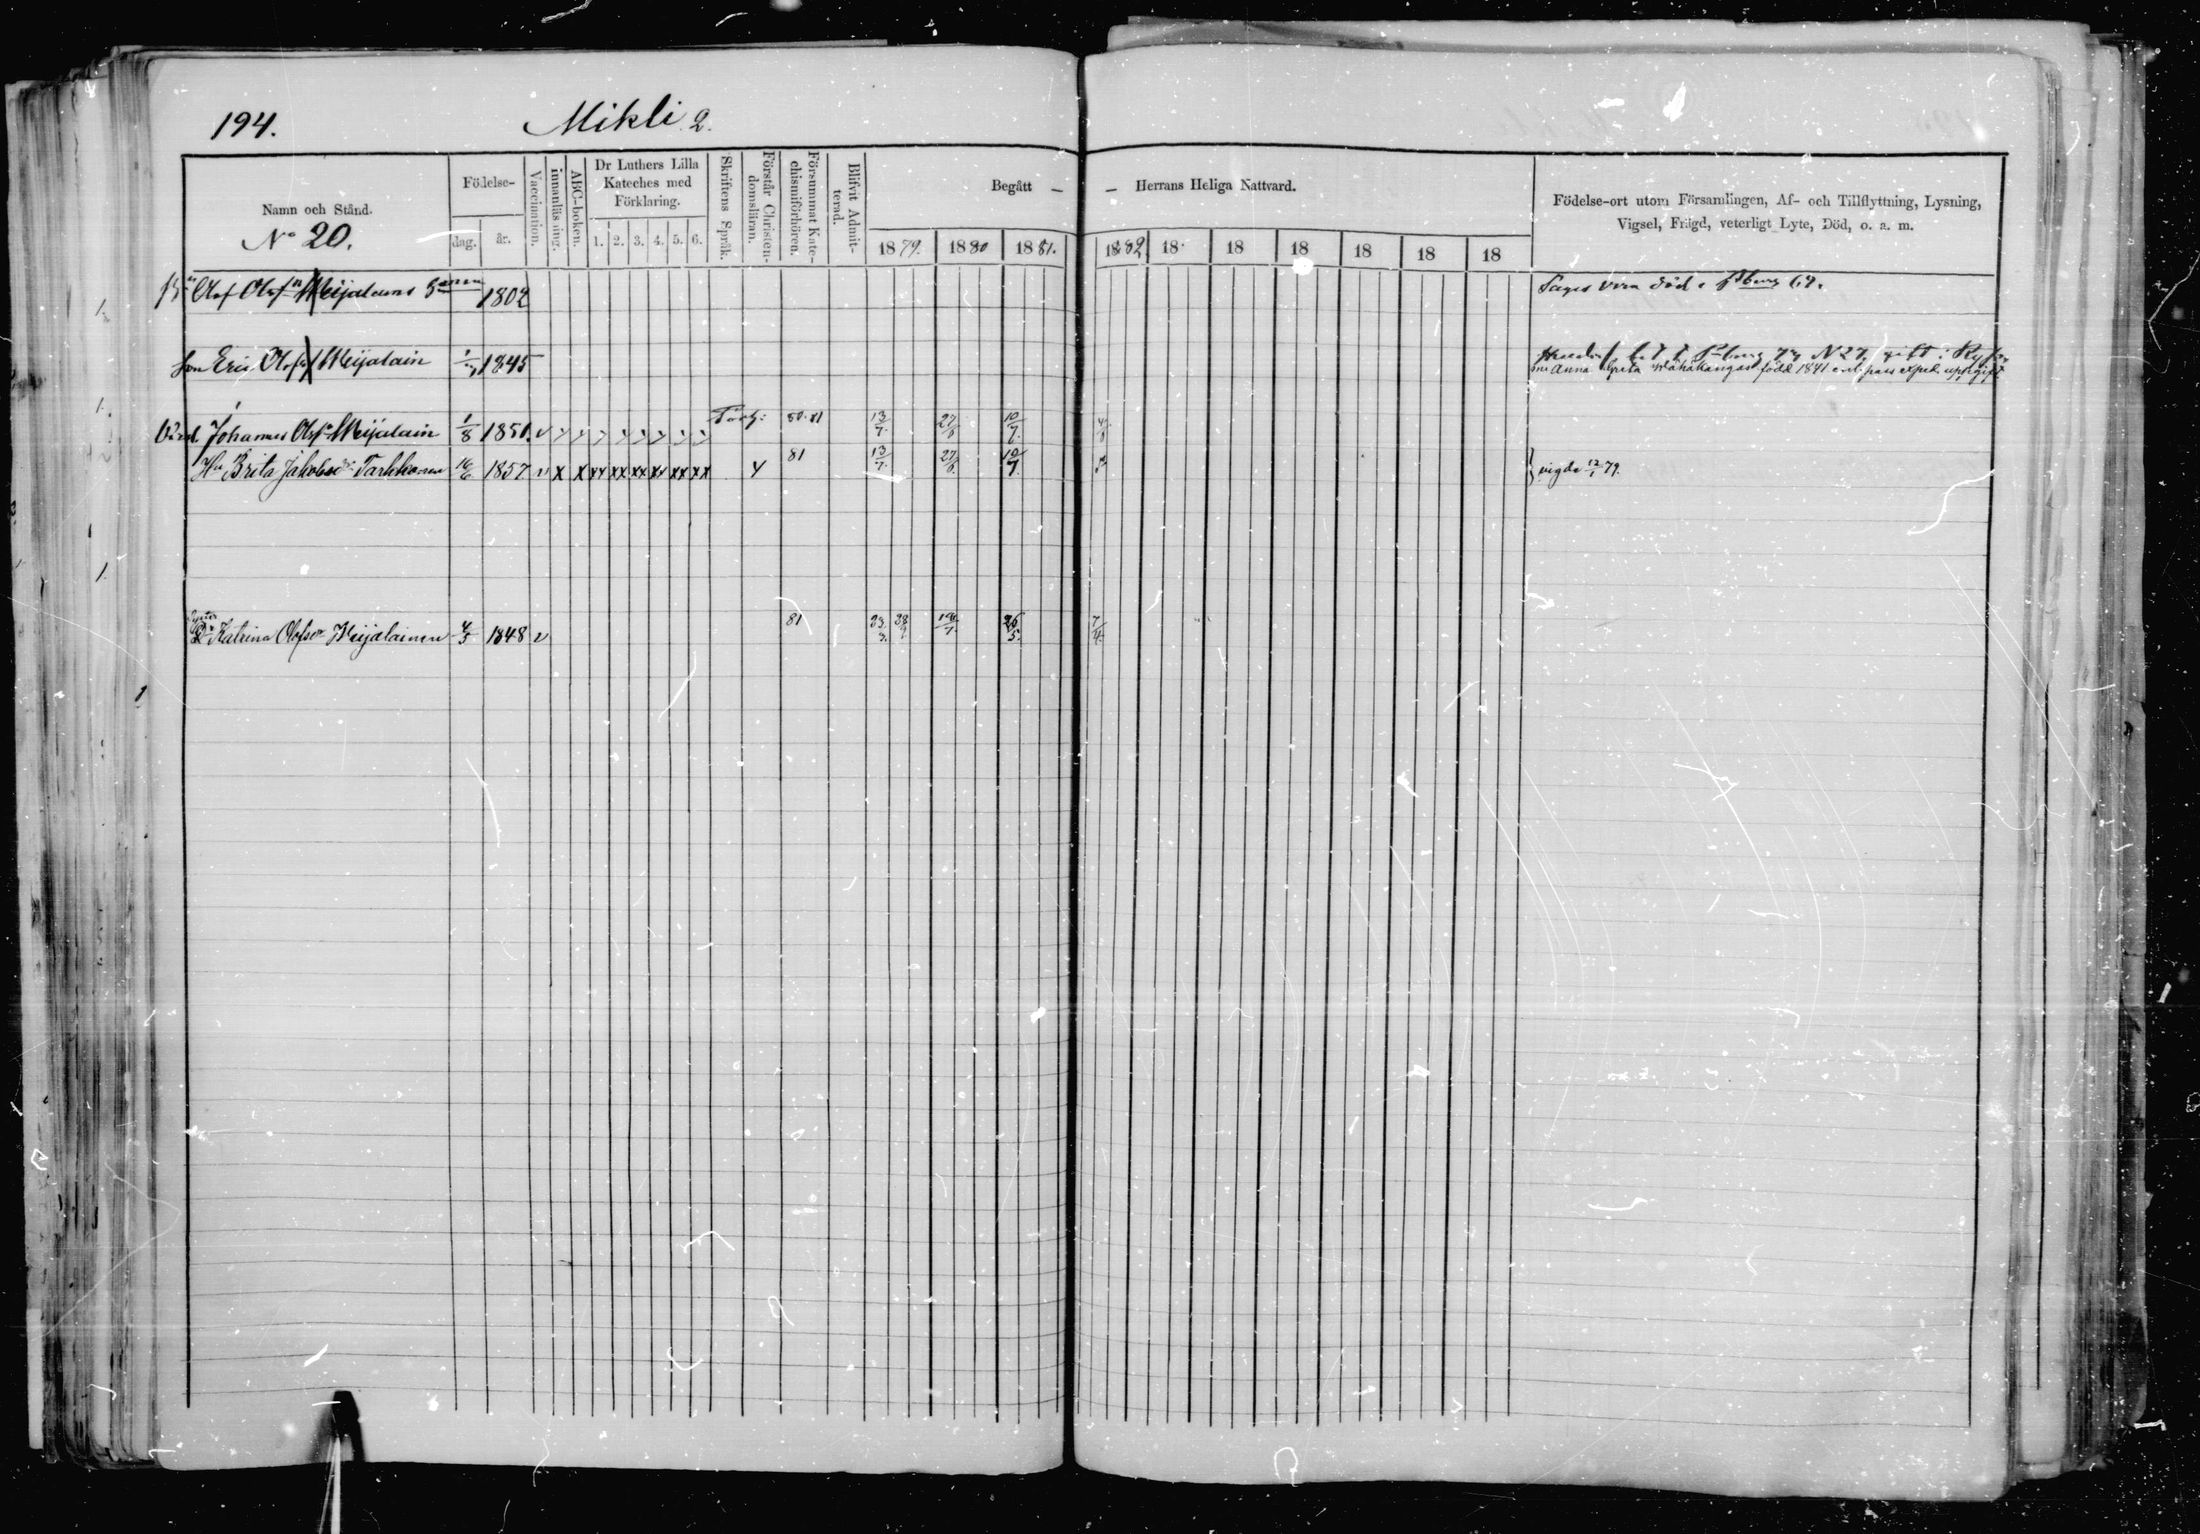 194. Mikli 2.
Namn och Stånd.
No 20.
Födelse-
dag. år.
Vaccination.
innanläsning.
ABC-boken.
Dr Luthers Lilla
Kateches med
Förklaring.
1. 2. 3. 4. 5. 6.
Skriftens Språk.
Förstår Christen-
domsläran.
Försummat Kate-
chismiförhören.
Blifvit Admit-
terad.
Begått — — Herrans Heliga Nattvard.
1879. 1880 1881. 1882 18 18 18 18 18 18
Födelse-ort utom Församlingen, Af- och Tillflyttning, Lysning,
Vigsel, Frägd, veterligt Lyte, Död, o. a. m.
Olof Olofsn Meijalainen 1802 Säges vara död i Pburg 69.
Son Eric Olofsn Meijalain 1845
Anna Greta Mähäkangas född 1841 enl. pass exped. uppgift
Johannes Olofsn Meijalain 1/8 1851. v 80. 81 13/7. 27/6 10/7.
Hu Brita Jakobsdr Tarkkonen 16/6 1857 v x x xx xx xx xx xx xx 4 81 13/7. 27/6. 10/7. vigda 12/1 79.
Dr Katrina Olofsdr Meijalainen 4/5 1848 v 81 23/3. 28/9. 26/5. 7/4.